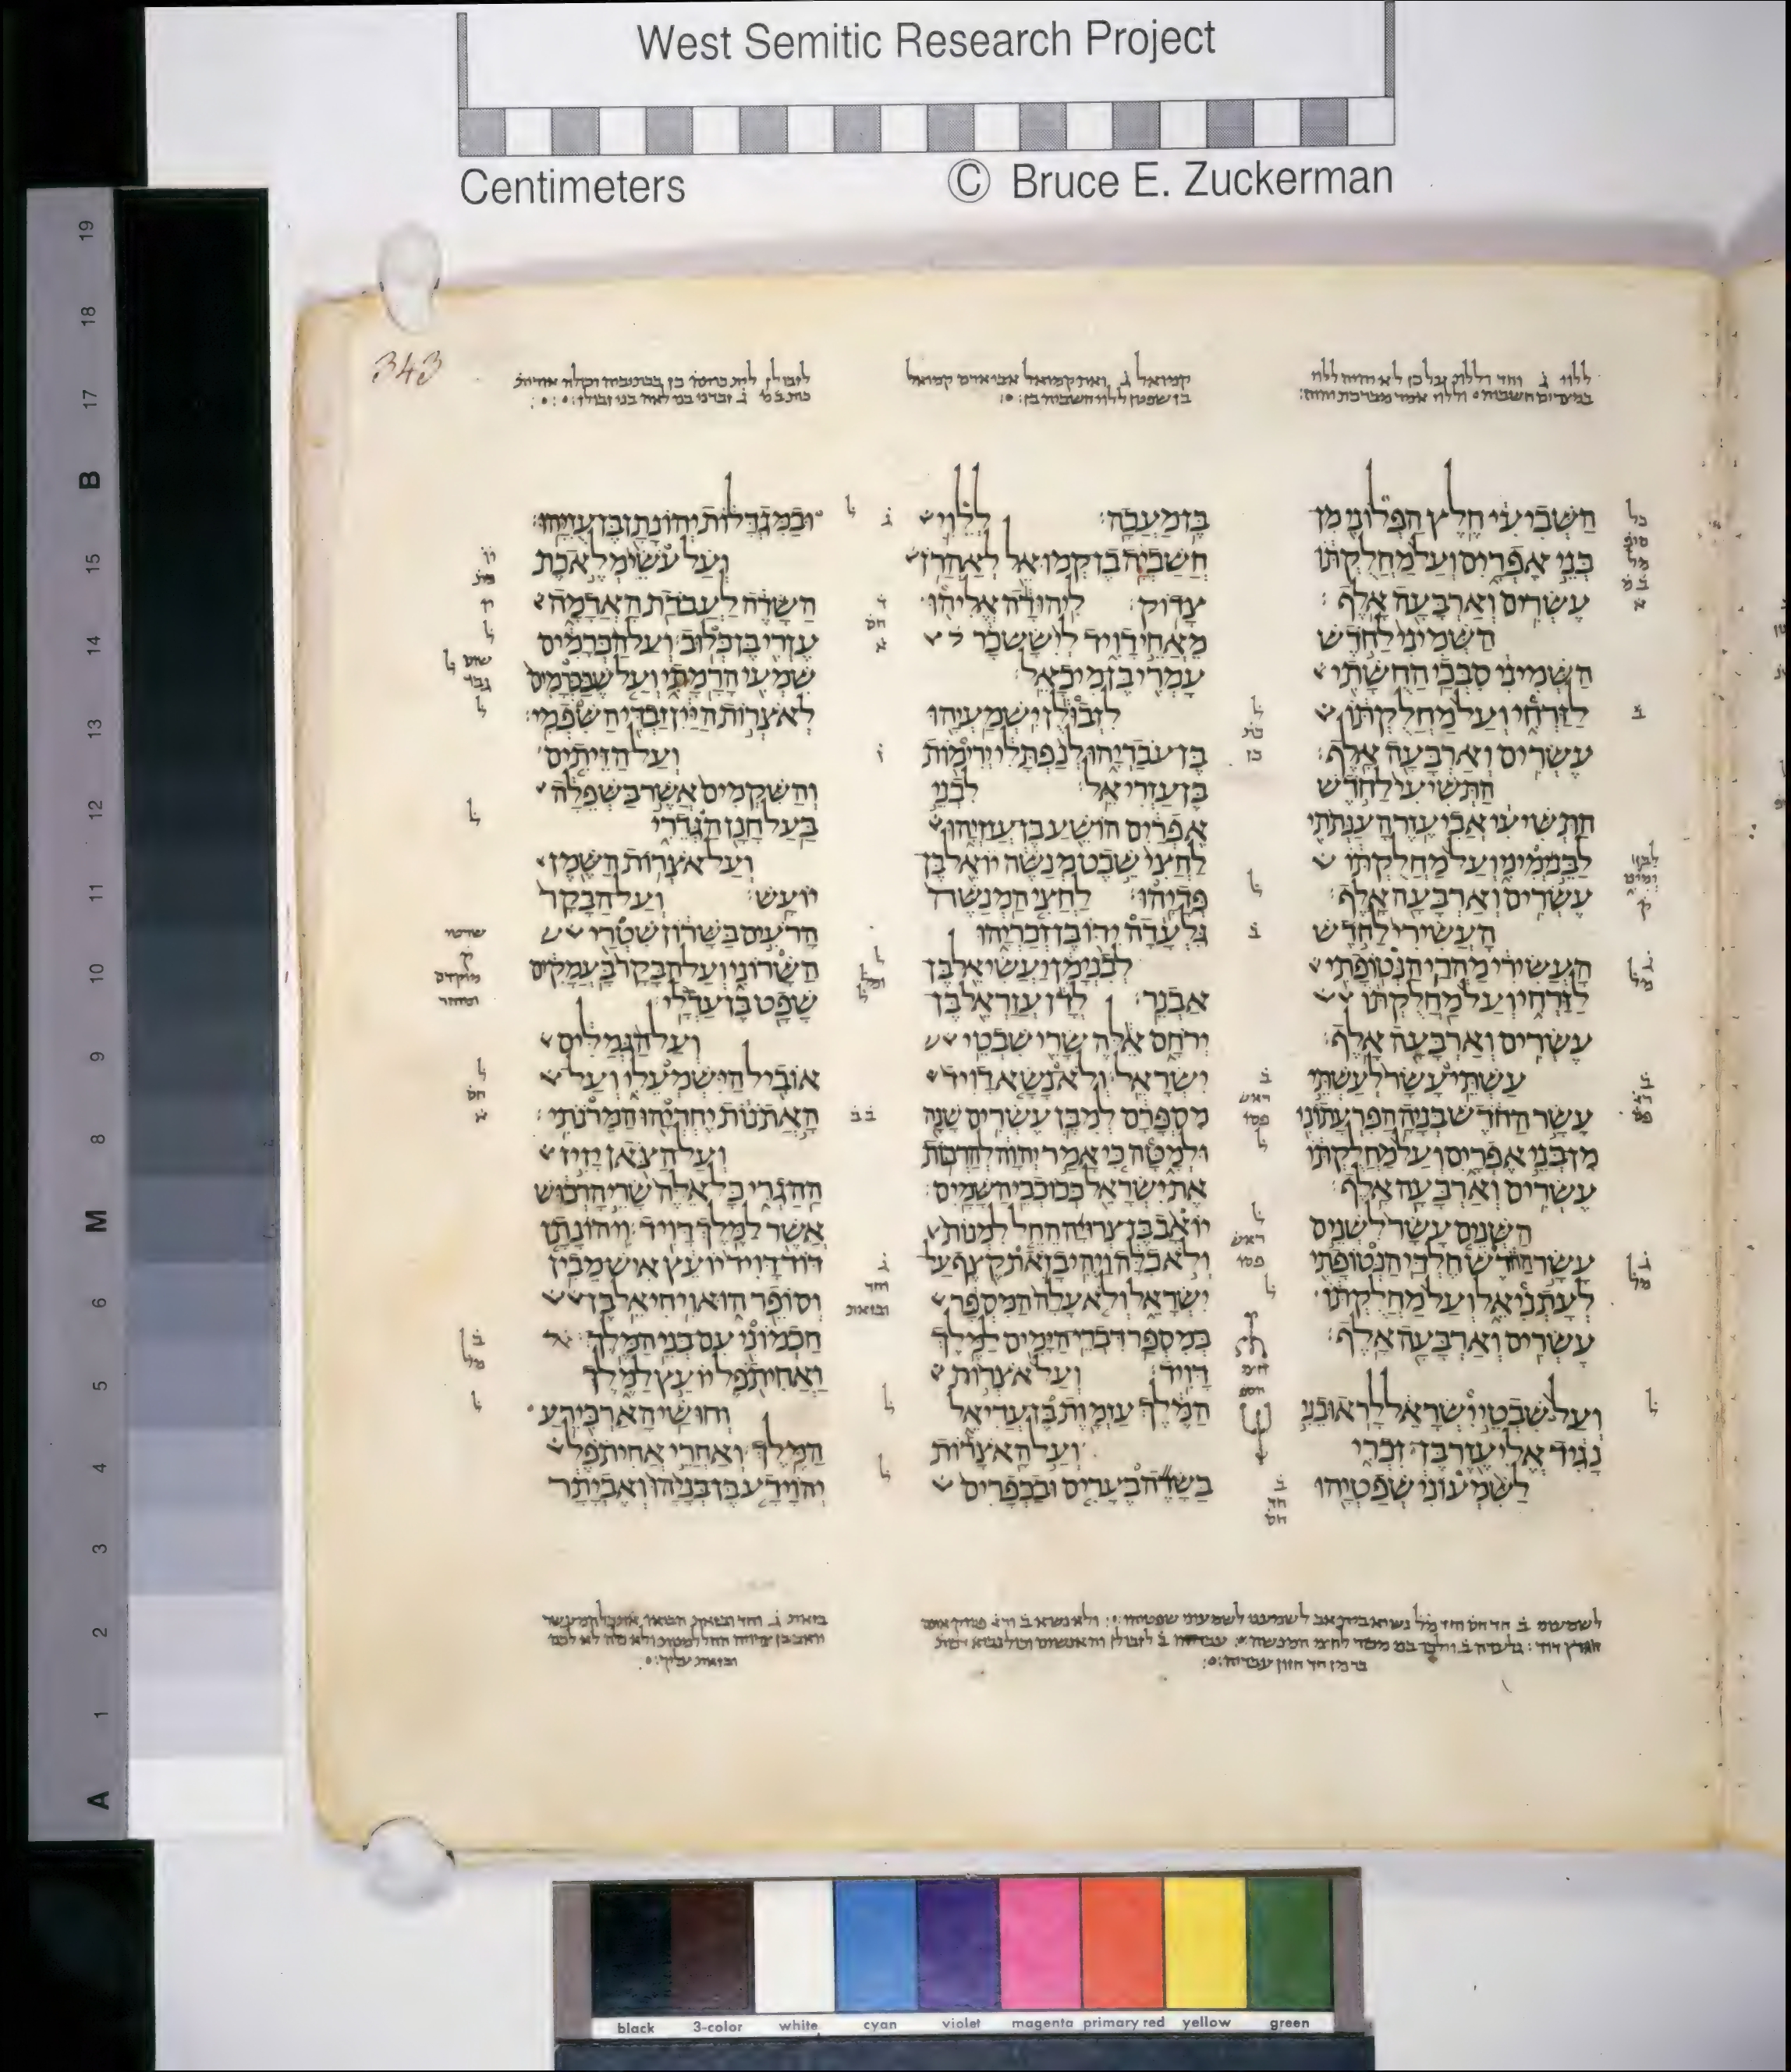 West Semitic Research Project
Centimeters
© Bruce E. Zuckerman
343
השביעי חלץ הפלוני מן
בני אפרים ועל מחלקתו
עשרים וארבעה אלף׃
השמיני לחדש
השמיני סבכי החשתי
לזרחי ועל מחלקתו
עשרים וארבעה אלף׃
התשיעי לחדש
התשיעי אביעזר הענתתי
לבנימיני ועל מחלקתו
עשרים וארבעה אלף׃
העשירי לחדש
העשירי מהרי הנטופתי
לזרחי ועל מחלקתו
עשרים וארבעה אלף׃
עשתי עשר לעשתי
עשר החדש בניה הפרעתוני
מן בני אפרים ועל מחלקתו
עשרים וארבעה אלף׃
השנים עשר לשנים
עשר החדש חלדי הנטופתי
לעתניאל ועל מחלקתו
עשרים וארבעה אלף׃
ועל שבטי ישראל לראובני
נגיד אליעזר בן זכרי
לשמעוני שפטיהו
בן מעכה׃ ללוי
חשביה בן קמואל לאהרן
צדוק׃ ליהודה אליהו
מאחי דויד ליששכר
עמרי בן מיכאל׃
לזבולן ישמעיהו
בן עבדיהו לנפתלי ירימות
בן עזריאל׃ לבני
אפרים הושע בן עזזיהו
לחצי שבט מנשה יואל בן
פדיהו׃ לחצי המנשה
גלעדה ידו בן זכריהו
לבנימן יעשיאל בן
אבנר׃ לדן עזראל בן
ירחם אלה שרי שבטי
ישראל׃ ולא נשא דויד
מספרם למבן עשרים שנה
ולמטה כי אמר יהוה להרבות
את ישראל ככוכבי השמים׃
יואב בן צרויה החל למנות
ולא כלה ויהי בזאת קצף על
ישראל ולא עלה המספר
במספר דברי הימים למלך
דויד׃ ועל אצרות
המלך עזמות בן עדיאל
ועל האצרות
בשדה בערים ובכפרים
ובמגדלות יהונתן בן עזיהו׃
ועל עשי מלאכת
השדה לעבדת האדמה
עזרי בן כלוב׃ ועל הכרמים
שמעי הרמתי ועל שבכרמים
לאצרות היין זבדי השפמי׃
ועל הזיתים
והשקמים אשר בשפלה
בעל חנן הגדרי
ועל אצרות השמן
יועש׃ ועל הבקר
הרעים בשרון שטרי
השרוני ועל הבקר בעמקים
שפט בן עדלי׃
ועל הגמלים
אוביל הישמעלי ועל
האתנות יחדיהו המרנתי׃
ועל הצאן יזיז
ההגרי כל אלה שרי הרכוש
אשר למלך דויד׃ ויהונתן
דוד דויד יועץ איש מבין
וסופר הוא ויחיאל בן
חכמוני עם בני המלך׃
ואחיתפל יועץ למלך
וחושי הארכי רע
המלך׃ ואחרי אחיתפל
יהוידע בן בניהו ואביתר
19
18
17
B
15
14
13
12
11
10
9
8
M
6
5
4
3
2
1
A
black 3-color white cyan violet magenta primary red yellow green